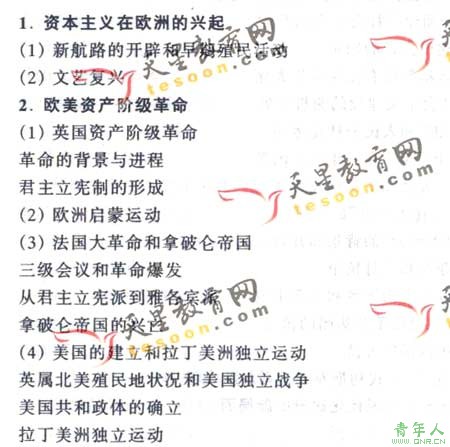 1. 资本主义在欧洲的兴起
(1) 新航路的开辟和早期殖民活动
(2) 文艺复兴
2. 欧美资产阶级革命
(1) 英国资产阶级革命
革命的背景与进程
君主立宪制的形成
(2) 欧洲启蒙运动
(3) 法国大革命和拿破仑帝国
三级会议和革命爆发
从君主立宪派到雅各宾派
拿破仑帝国的兴亡
(4) 美国的建立和拉丁美洲独立运动
英属北美殖民地状况和美国独立战争
美国共和政体的确立
拉丁美洲独立运动
天星教育网
tesoon.com
天星教育网
tesoon.com
天星教育网
tesoon.com
青年人
www.QNR.CN